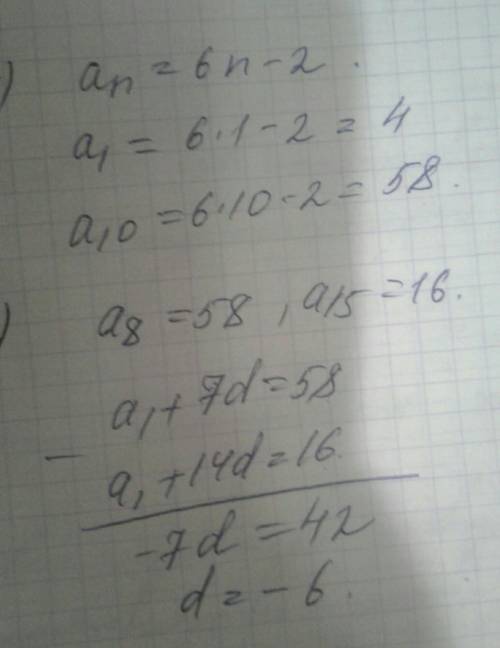 ) aₙ = 6n - 2.
a₁ = 6·1 - 2 = 4
a₁₀ = 6·10 - 2 = 58.
) a₈ = 58, a₁₅ = 16.
a₁ + 7d = 58
- a₁ + 14d = 16.
-7d = 42
d = -6.